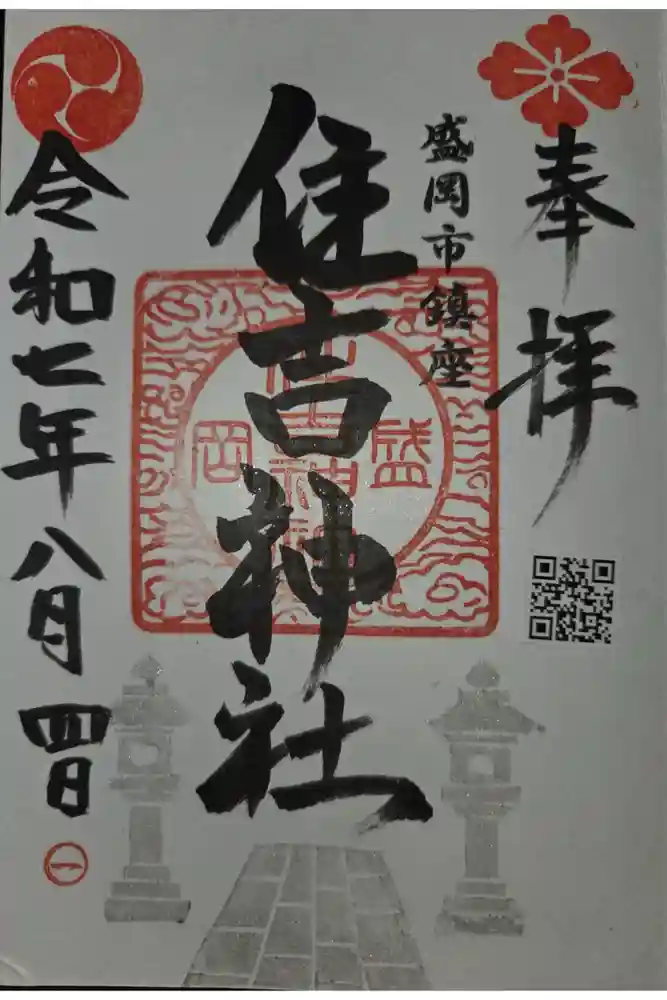 奉拝
盛岡市鎮座
住吉神社
盛岡
令和七年八月四日
一